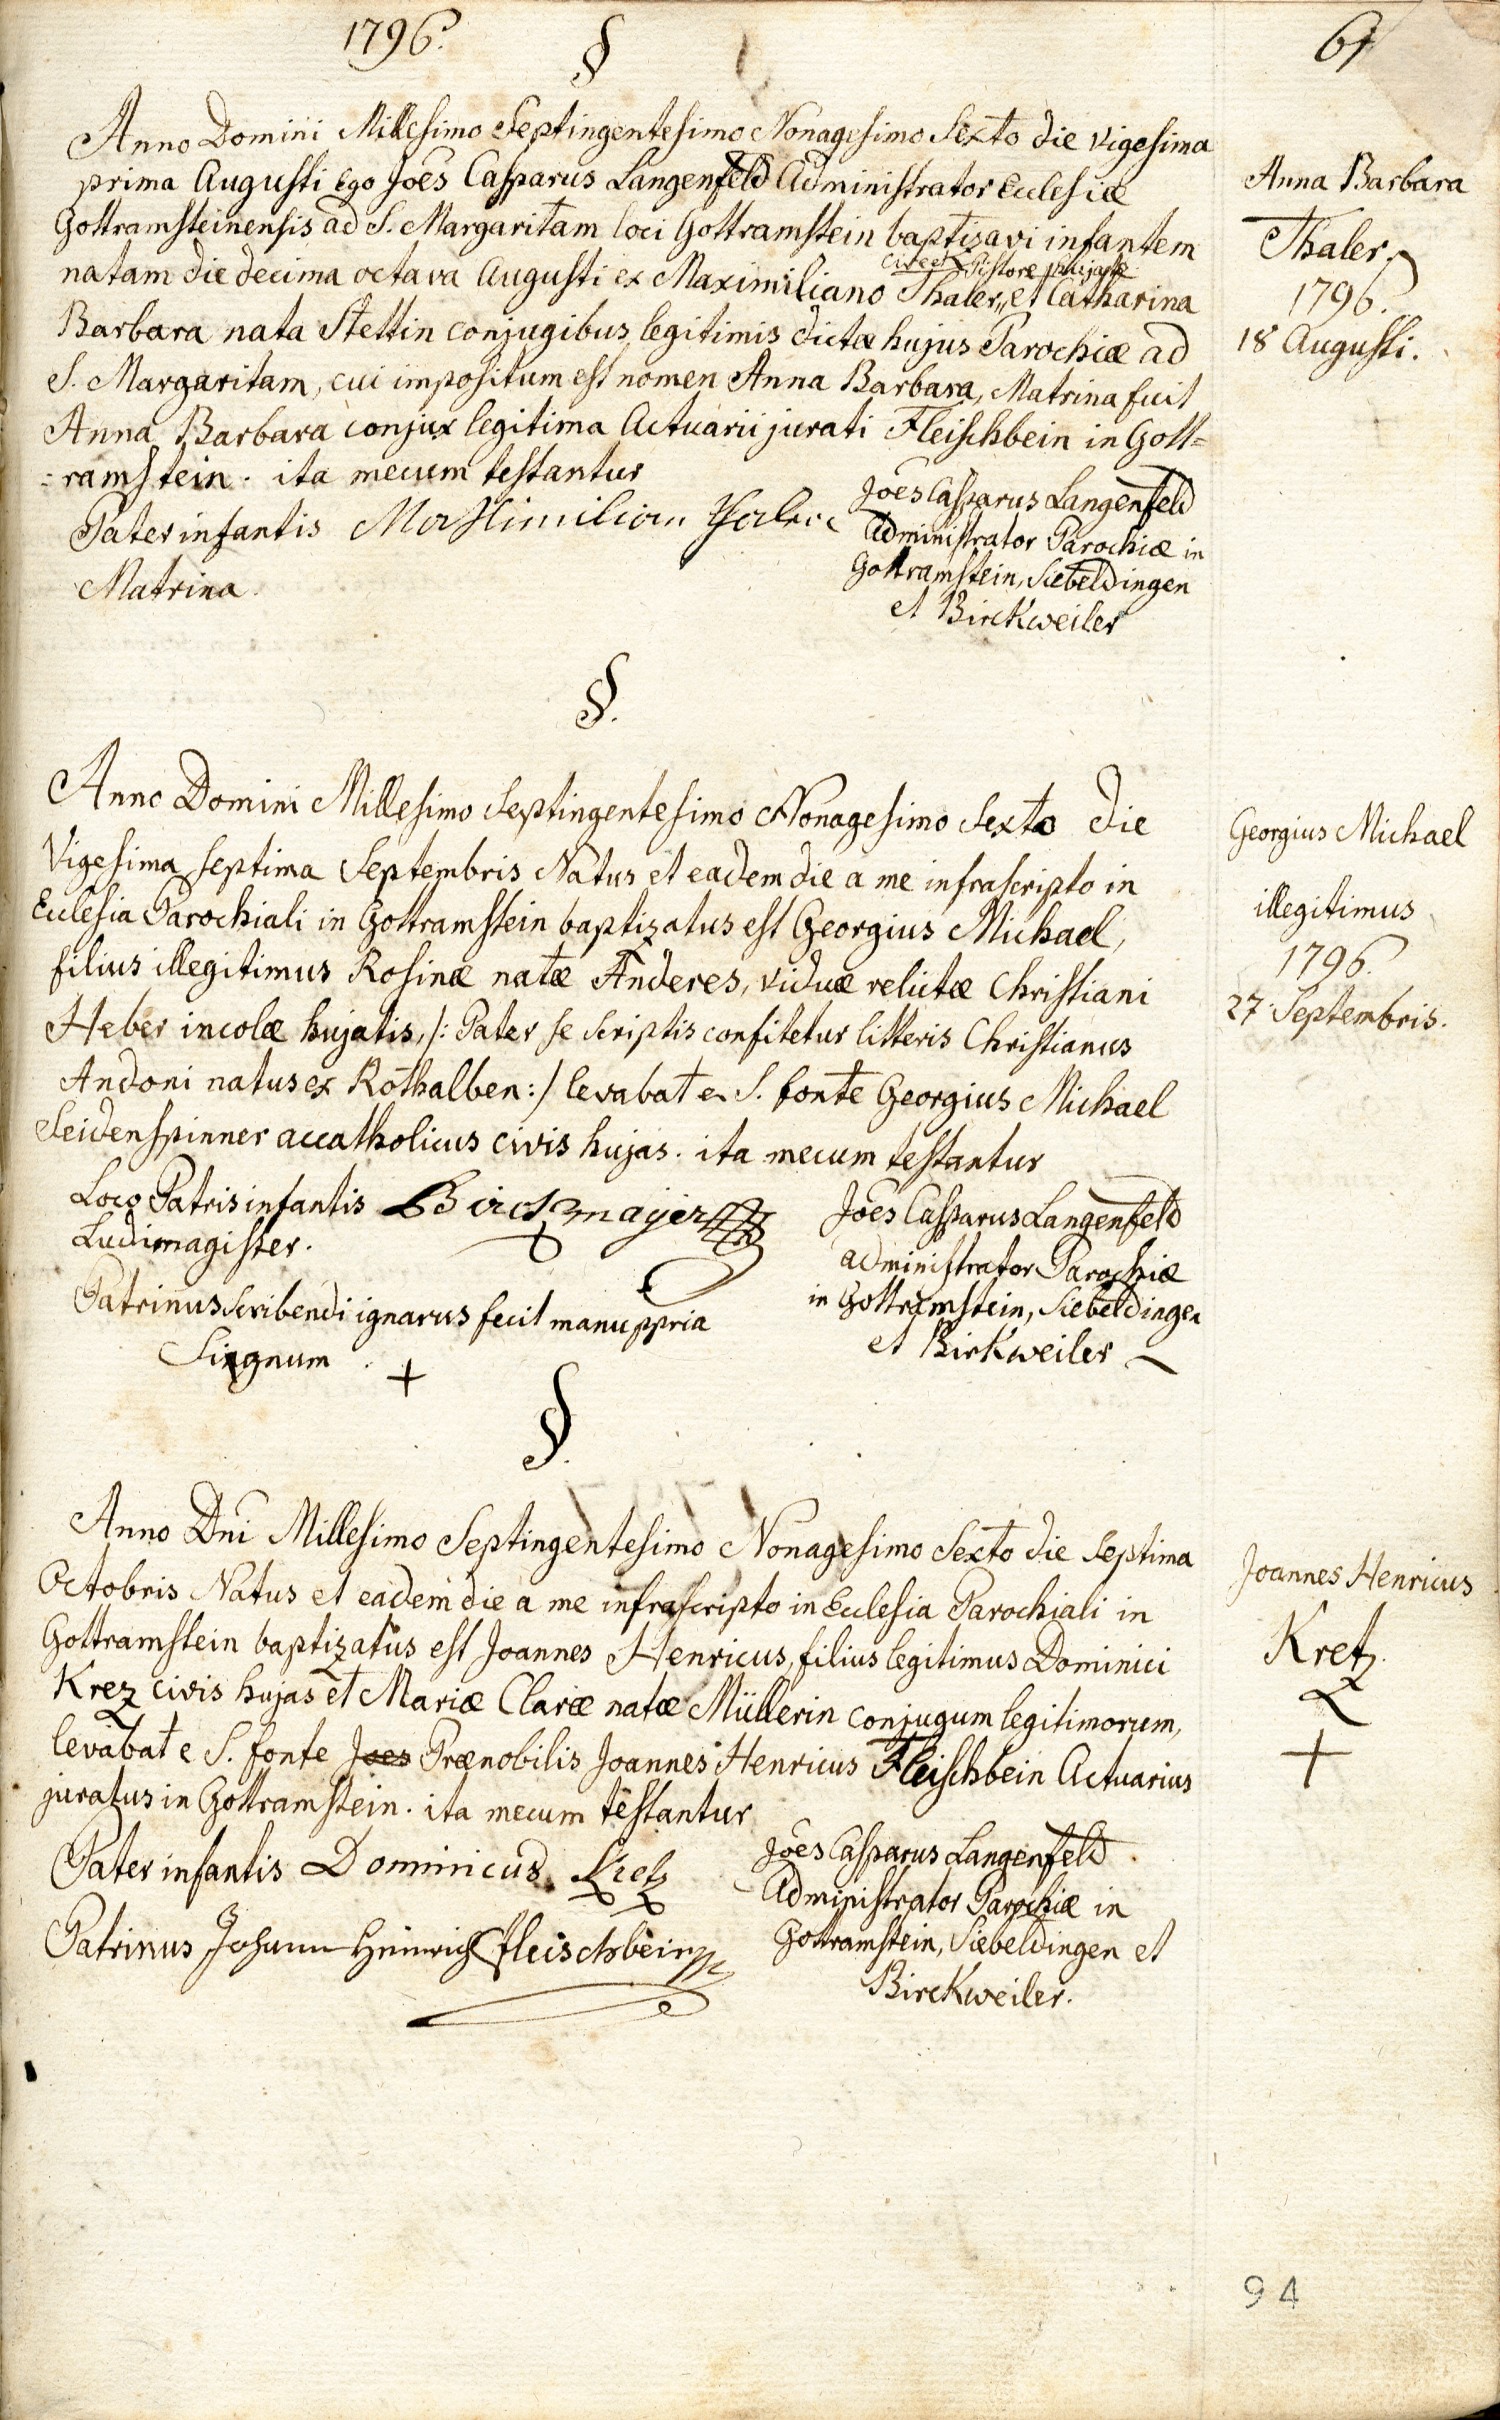 1796.
§
61
Anno Domini Millesimo Septingentesimo Nonagesimo Sexto die vigesima
prima Augusti Ego Joês Casparus Langenfeld Administrator Ecclesiæ
Gottramsteinensis ad S. Margaritam loci Gottramstein baptizavi infantem
cive et Pistore hujate
natam die decima octava Augusti ex Maximiliano Thaler,, et Catharina
Barbara nata Stettin conjugibus legitimis dictæ hujus Parochiæ ad
S. Margaritam, cui impositum est nomen Anna Barbara, Matrina fuit
Anna Barbara conjux legitima Actuarii jurati Fleischbein in Gott=
=ramstein. ita mecum testantur
Pater infantis Maximilian Thaler
Matrina.
Joês Casparus Langenfeld
Administrator Parochiæ in
Gottramstein, Siebeldingen
et Birckweiler
Anna Barbara
Thaler.
1796.
18 Augusti.
§.
Anno Domini Millesimo Septingentesimo Nonagesimo Sexto die
Vigesima septima Septembris Natus et eadem die a me infrascripto in
Ecclesia Parochiali in Gottramstein baptizatus est Georgius Michael,
filius illegitimus Rosinæ natæ Anderes, viduæ relictæ Christiani
Heber incolæ hujatis, /: Pater se scriptis confitetur litteris Christianus
Andoni natus ex Rothalben :/ levabat e S. fonte Georgius Michael
Seidenspinner accatholicus civis hujas. ita mecum testantur
Loco Patris infantis Birckmajer
Ludimagister.
Patrinus scribendi ignarus fecit manuppria
Singnum +
Joês Casparus Langenfeld
administrator Parochiæ
in Gottramstein, Siebeldingen
et Birkweiler
Georgius Michael
illegitimus
1796.
27. Septembris.
§.
Anno Dni Millesimo Septingentesimo Nonagesimo Sexto die Septima
Octobris Natus et eadem die a me infrascripto in Ecclesia Parochiali in
Gottramstein baptizatus est Joannes Henricus, filius legitimus Dominici
Krez civis hujas et Mariæ Claræ natæ Müllerin conjugum legitimorum,
levabat e S. fonte Joes Prænobilis Joannes Henricus Fleischbein Actuarius
juratus in Gottramstein. ita mecum testantur
Pater infantis Dominicus Kretz
Patrinus Johann Heinrich Fleischbein
Joês Casparus Langenfeld
Administrator Parochiæ in
Gottramstein, Siebeldingen et
Birckweiler.
Joannes Henricus
Kretz.
+
94